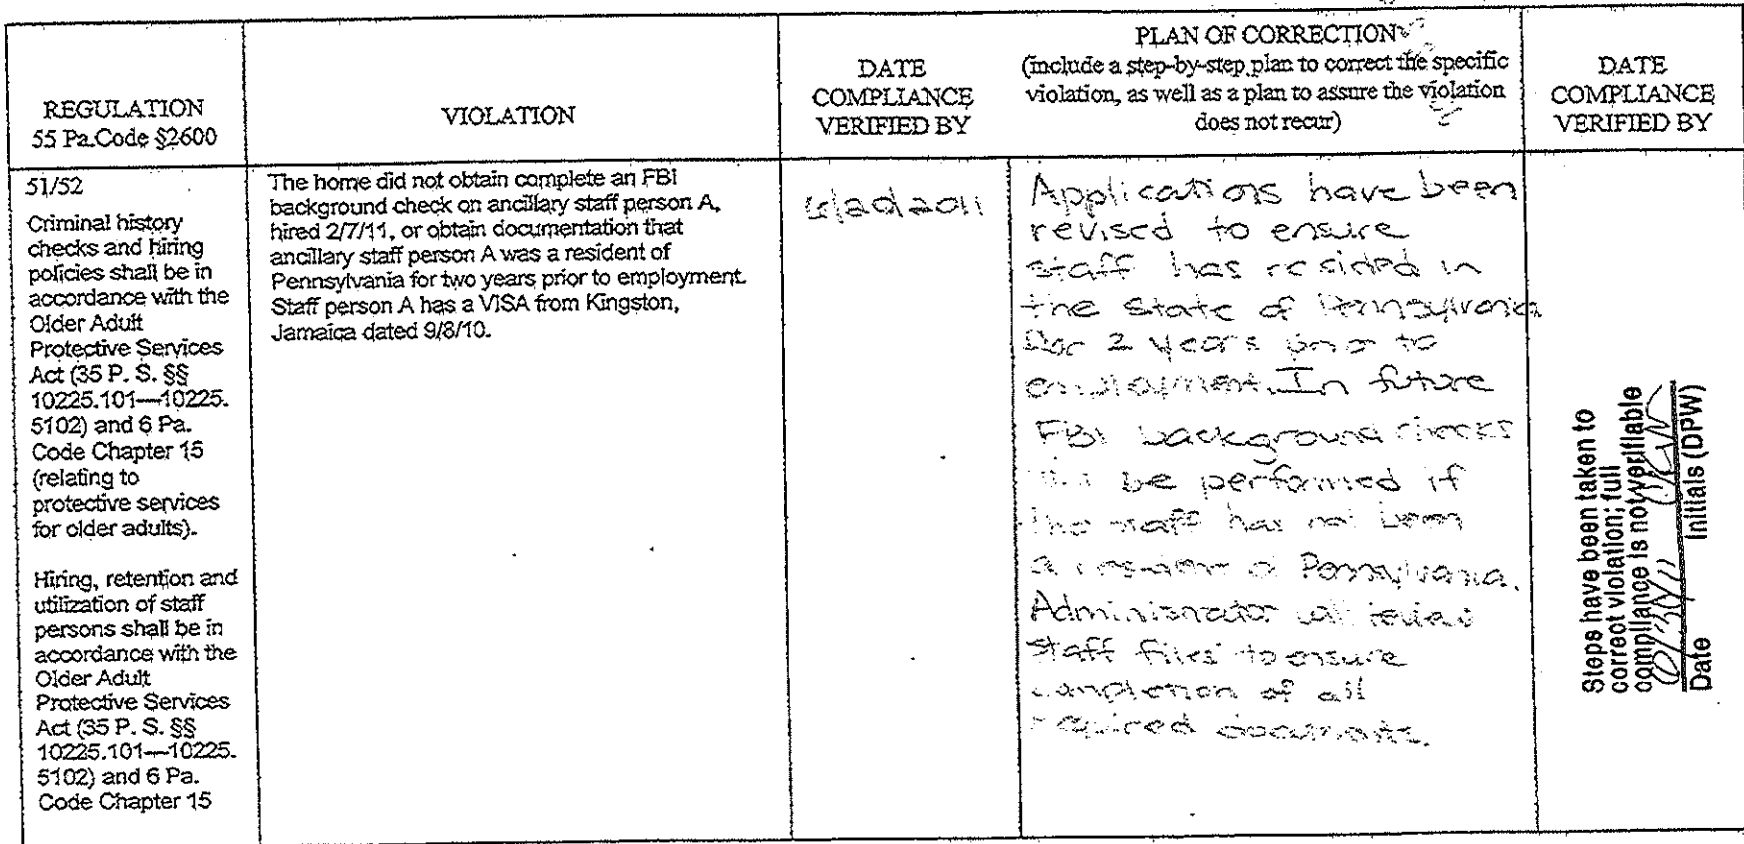 REGULATION
55 Pa.Code §2600
VIOLATION
DATE
COMPLIANCE
VERIFIED BY
PLAN OF CORRECTION
(include a step-by-step plan to correct the specific
violation, as well as a plan to assure the violation
does not recur)
DATE
COMPLIANCE
VERIFIED BY
51/52
Criminal history
checks and hiring
policies shall be in
accordance with the
Older Adult
Protective Services
Act (35 P. S. §§
10225.101—10225.
5102) and 6 Pa.
Code Chapter 15
(relating to
protective services
for older adults).
Hiring, retention and
utilization of staff
persons shall be in
accordance with the
Older Adult
Protective Services
Act (35 P. S. §§
10225.101—10225.
5102) and 6 Pa.
Code Chapter 15
The home did not obtain complete an FBI
background check on ancillary staff person A,
hired 2/7/11, or obtain documentation that
ancillary staff person A was a resident of
Pennsylvania for two years prior to employment.
Staff person A has a VISA from Kingston,
Jamaica dated 9/8/10.
Applications have been
revised to ensure
staff has resided in
the State of Pennsylvania
for 2 years prior to
employment. In future
FBI background checks
will be performed if
the staff has not been
a resident of Pennsylvania.
Administrator will review
staff files to ensure
completion of all
required documents.
Steps have been taken to
correct violation; full
compliance is not verifiable
Date Initials (DPW)